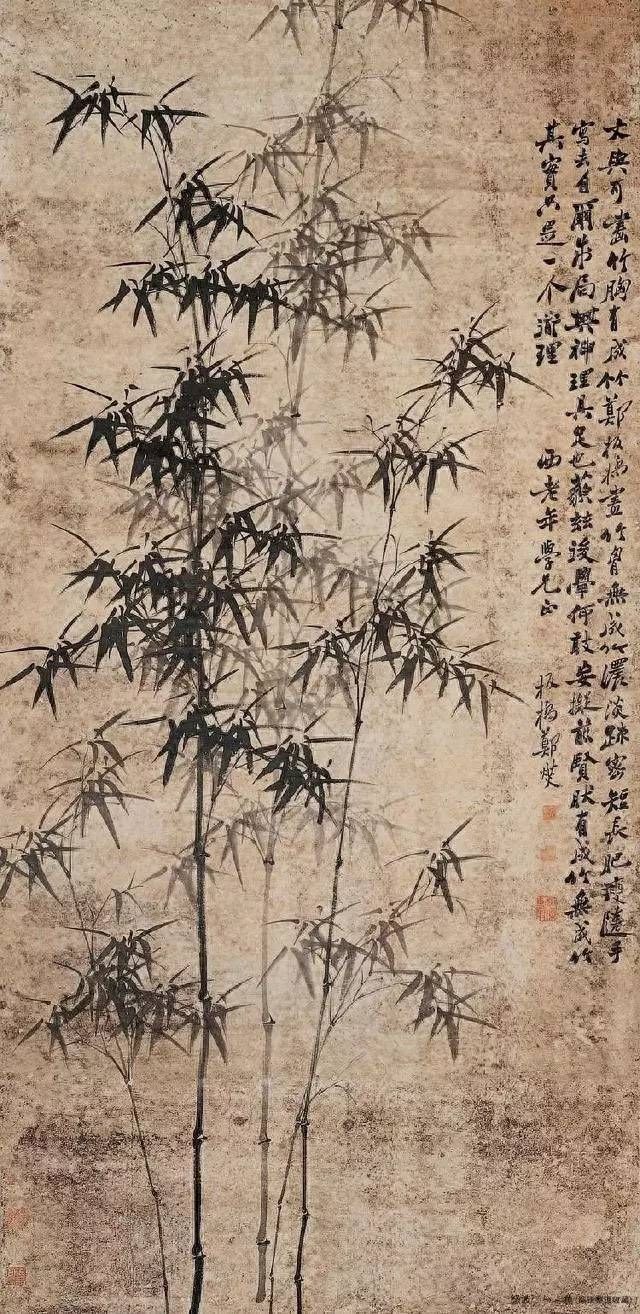 文與可畫竹胸有成竹鄭板橋畫竹胷無成竹濃淡疎密短長肥瘦隨手
寫去自爾成局其神理具足也藐茲後學何敢妄擬前賢然有成竹無成竹
其實只是一个道理
酉老年學兄正
板橋鄭燮